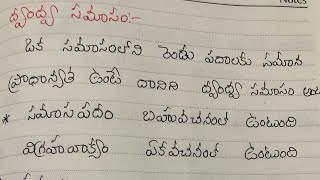 ద్వంద్వ సమాసం:-
ఒక సమాసంలోని రెండు పదాలకు సమాన
ప్రాధాన్యత ఉంటే దానిని ద్వంద్వ సమాసం అంట
* సమాసపదం బహువచనంలో ఉంటుంది
విగ్రహవాక్యం ఏకవచనంలో ఉంటుంది